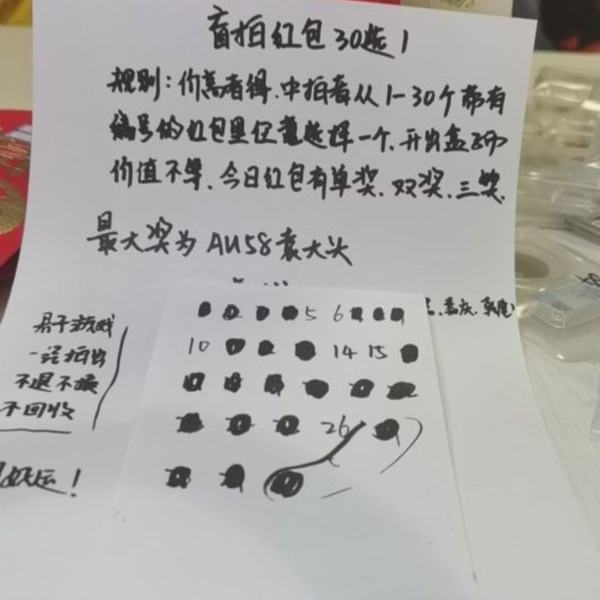 盲拍红包30选1
规则：价高者得.中拍者从1-30个带有
编号的红包里任意选择一个.开出盒子币
价值不等.今日红包有单奖.双奖.三奖.
最大奖为AU58袁大头
君子游戏
一经拍出
不退不换
不回收
好运！
5 6
10 14 15
26